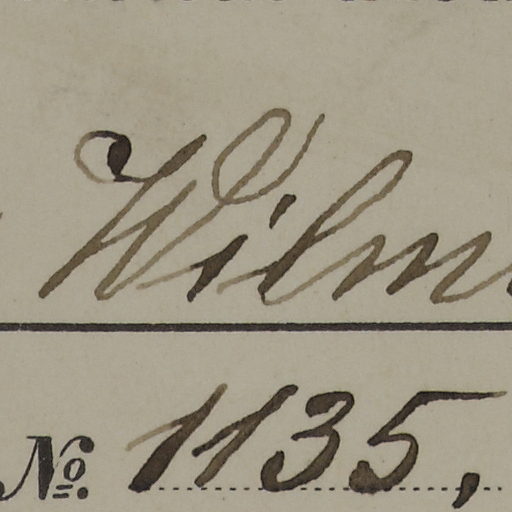 Wilm
№ 1135,